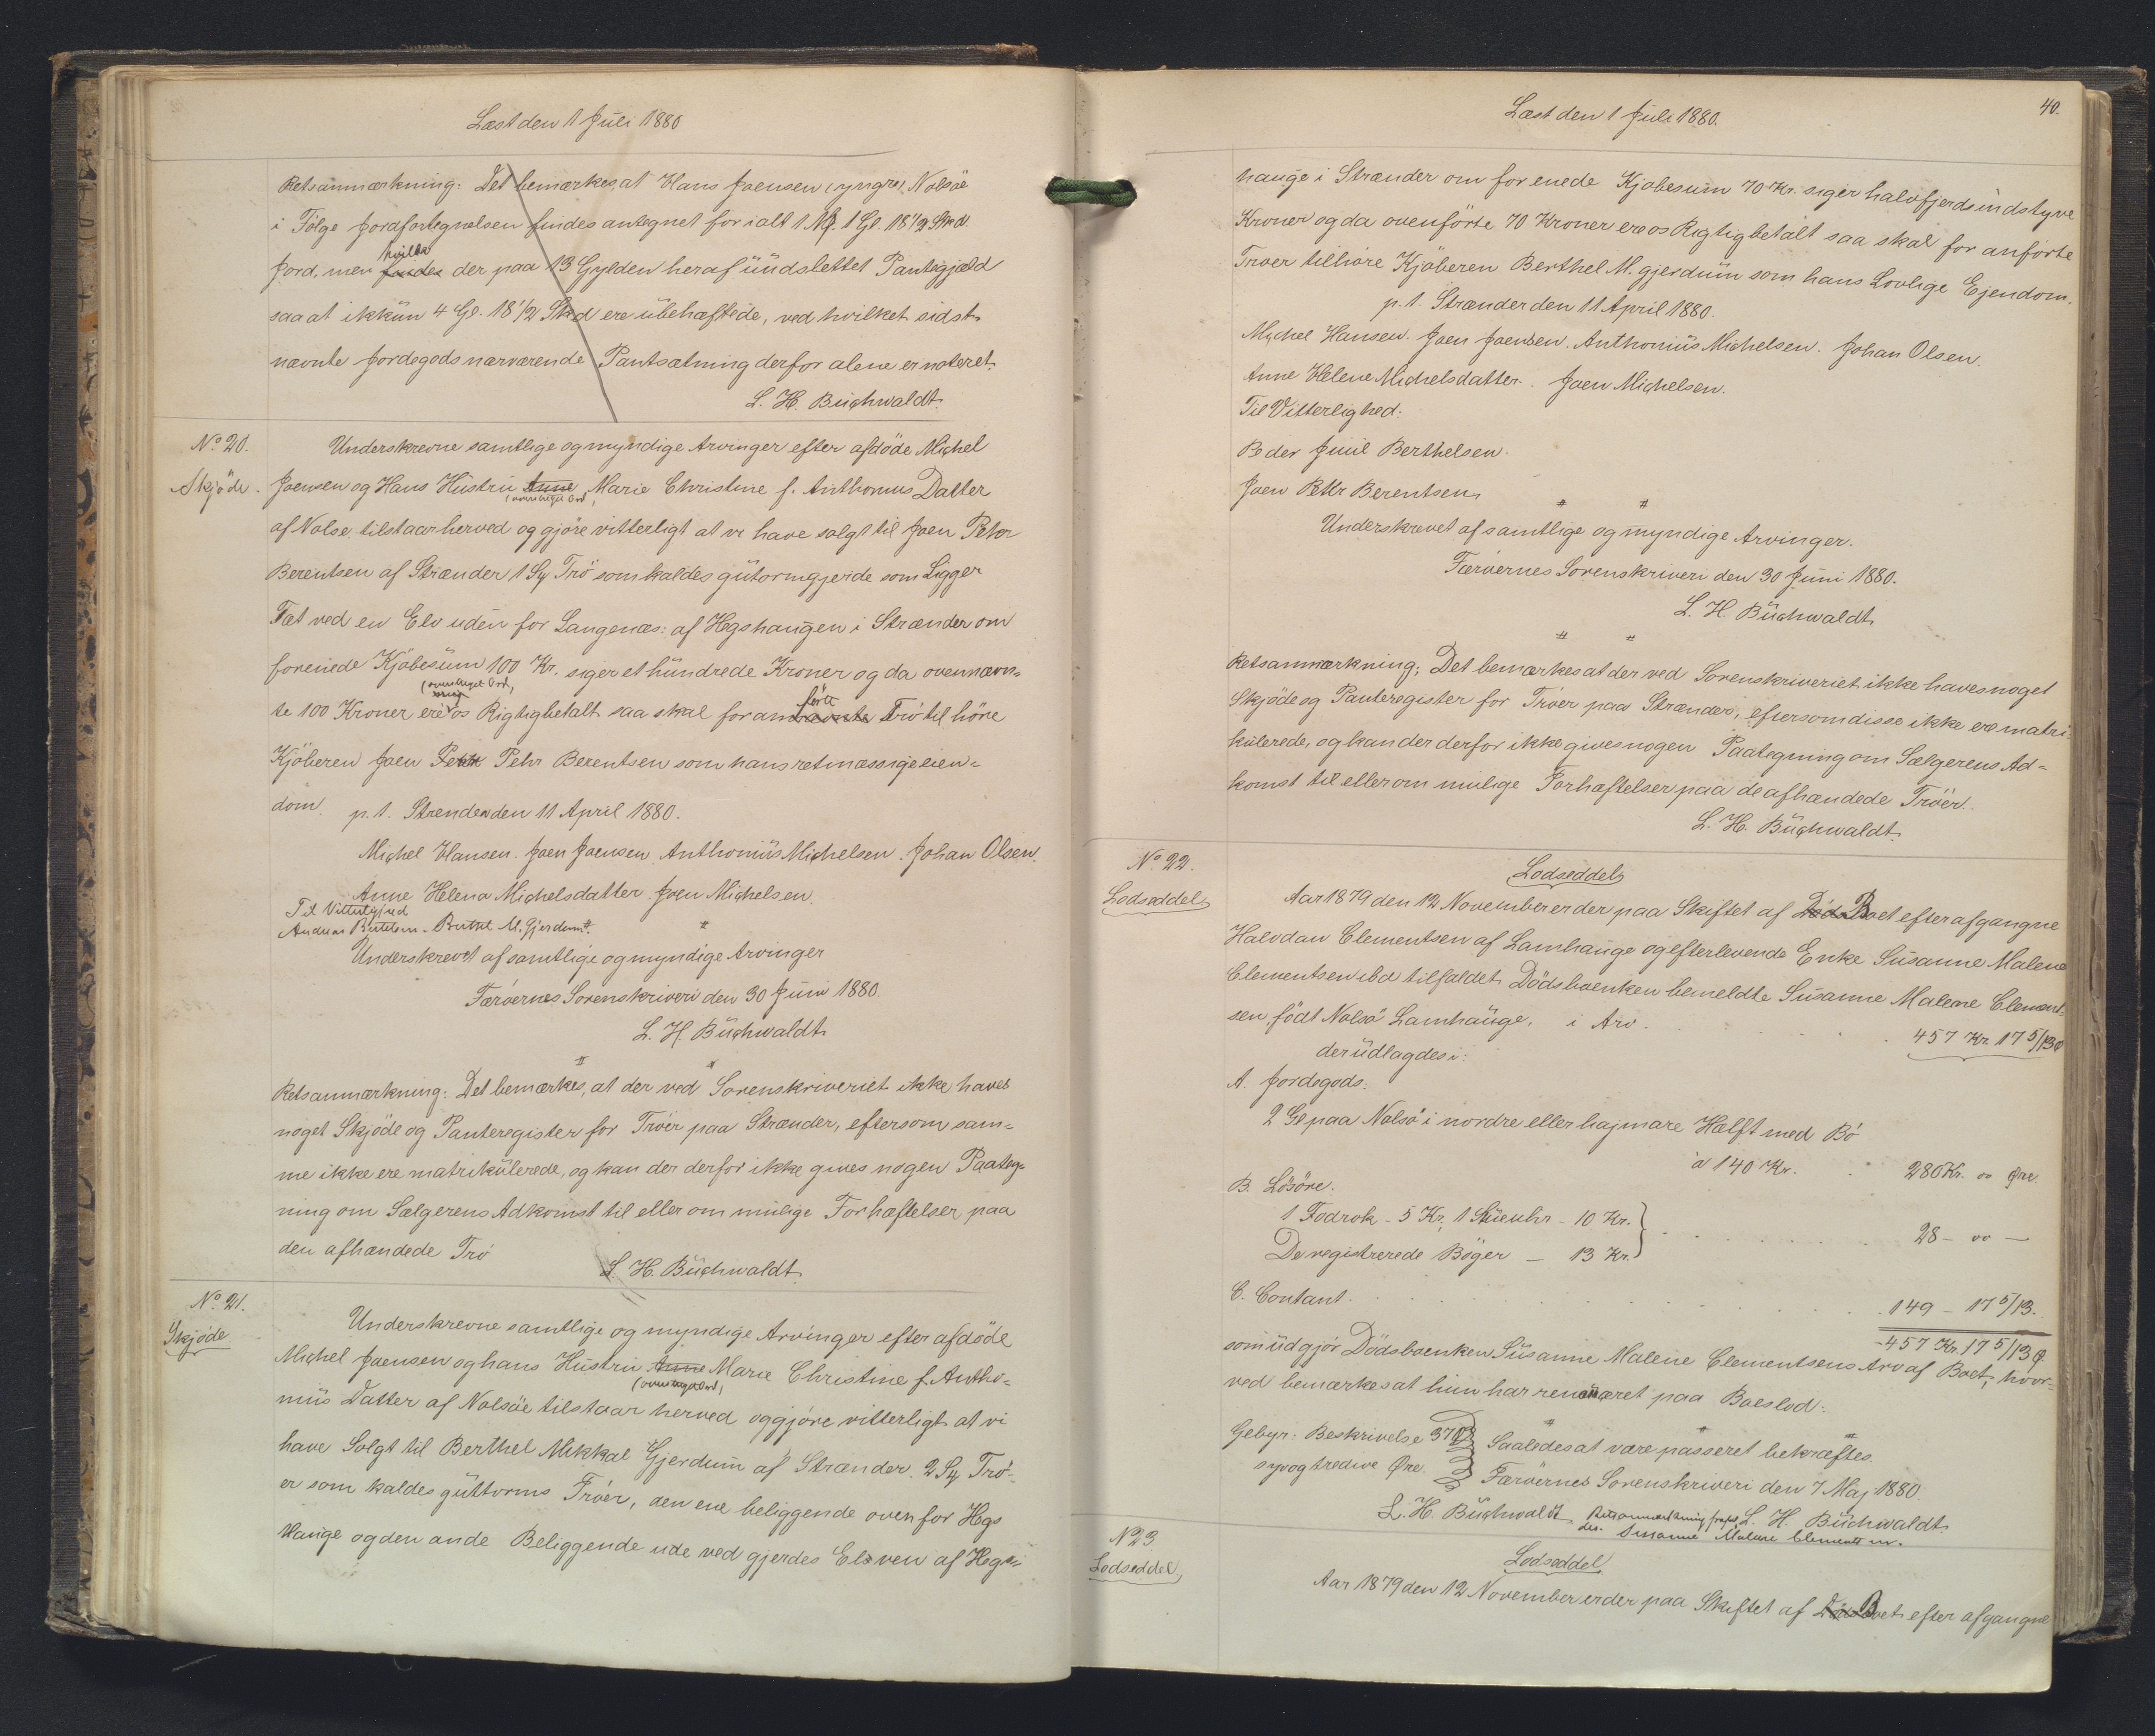 Læst den 1 Juli 1880
Retsanmærkning: Det bemærkes, at Hans Joensen (yngre) Nolsöe
i Fölge Jordfortegnelsen findes antegnet for ialt 1 Mk. 1 Gl. 18 1/2 Skd.
hviller
Jord, men findes der paa 13 Gylden heraf üudslettet Pantegjæld
saa at ikkün 4 Gl. 18 1/2 Skd ere übehæftede, ved hvilket sidst
nævnte Jordegods nærværende Pantsætning derfor alene er noteret.
L. H. Büchwaldt.
No 20.
Skjöde.
Underskrevne samtlige og myndige Arvinger efter afdöde Michel
Joensen og Hans Hüstrü Anne Marie Christine f. Anthonius Datter
(overstreget Ord)
af Nolsö tilstaar herved og gjöre vitterligt at vi have solgt til Joen Peter
Berentsen af Strænder 1 St Trö som kaldes gütormgjerde som Ligger
Tæt ved en Elv uden for Langenæs: af Hegshaugen i Strænder om
forenede Kjöbesüm 100 Kr. siger et hündrede Kroner og da ovennævn-
(overstreget Ord)
förte
te 100 Kroner ere os Rigtig betalt saa skal for annævnte Trö til höre
Kjöberen Joen Petter Pehr Berentsen som hans retmæssige eien-
dom. p. t. Strender den 11 April 1880.
Michel Hansen. Joen Joensen. Anthoniüs Michelsen. Johan Olsen.
Anne Helena Michelsdatter. Joen Michelsen.
Til Vitterlighed
Berthel M. Gjerdum.
Underskrevet af samtlige og myndige Arvinger
Færöernes Sorenskriveri den 30 Juni 1880.
L. H. Büchwaldt.
Retsanmærkning: Det bemærkes, at der ved Sorenskriveriet ikke haves
noget Skjöde og Panteregister for Tröer paa Strænder, eftersom sam-
me ikke ere matrikülerede, og kan der derfor ikke gives nogen Paateg-
ning om Sælgerens Adkomst til eller om mülige Forhæftelser paa
den afhændede Trö
L. H. Büchwaldt.
No 21.
Skjöde
Underskrevne samtlige og myndige Arvinger efter afdöde
Michel Joensen og hans Hustrü Anne Marie Christine f. Antho-
(overstreget Ord)
niüs Datter af Nolsöe tilstaar herved og gjöre vitterligt at vi
have Solgt til Berthel Mikkal Gjerdum af Strænder. 2 St Trö-
er som kaldes güttorms Tröer, den ene beliggende oven for Hegs
Hauge og den ande Beliggende ude ved gjerdes Elven af Hegs-
40.
Læst den 1 Juli 1880.
hauge i Strænder om for enede Kjöbesum 70 Kr. siger halvfjerdsindstyve
Kroner og da ovenförte 70 Kroner ere os Rigtig betalt saa skal for anförte
Tröer tilhöre Kjöberen Berthel M. gjerdum som hans Lovlige Ejendom.
p. t. Strænder den 11 April 1880.
Michel Hansen. Joen Joensen. Anthoniüs Michelsen. Johan Olsen.
Anne Helene Michelsdatter. Joen Michelsen.
Til Vitterlighed:
Peder Juül Berthelsen.
Joen Petter Berentsen.
Underskrevet af samtlige og myndige Arvinger.
Færöernes Sorenskriveri den 30 Juni 1880.
L. H. Büchwaldt.
Retsanmærkning: Det bemærkes at der ved Sorenskriveriet ikke haves noget
Skjöde og Panteregister for Tröer paa Strænder, eftersom disse ikke ere matri-
kulerede, og kan der derfor ikke gives nogen Paategning om Sælgerens Ad-
komst til eller om mulige Forhæftelser paa de afhændede Tröer.
L. H. Büchwaldt.
No 22.
Lodseddel
Lodseddel
Aar 1879 den 12 November er der paa Skiftet af Död Boet efter afgangne
Halvdan Clementsen af Lamhauge og efterlevende Enke Süsanne Malene
Clementsen ibd tilfaldet Dödsboenken bemeldte Süsanne Malene Clement-
sen födt Nolsö Lamhaüge, i Arv. 457 Kr. 17 5/13 Ø
der üdlagdes i:
A. Jordegods:
2 Gl paa Nolsö i nordre eller hajmare Hælft med Bö
à 140 Kr. 280 Kr. 00 Øre
B. Lösöre:
1 Fodrok - 5 Kr, 1 Stüeuhr - 10 Kr.
De registrerede Böger - 13 Kr. 28 - 00 -
C. Contant. 149 - 17 5/13.
457 Kr. 17 5/13 Ø
som üdgjör Dödsboenken Süsanne Malene Clementsens Arv af Boet, hvor-
ved bemærkes at hün har renünceret paa Boeslod.
Gebyr: Beskrivelse 37 Ø
syv og tredive Øre.
Saaledes at være passeret bekræftes.
Færöernes Sorenskriveri den 7 Maj 1880.
L. H. Büchwaldt. L. H. Büchwaldt.
Susanne Malene Clementsen.
No 23.
Lodseddel
Lodseddel
Aar 1879 den 12 November er der paa Skiftet af Död Boet efter afgangne